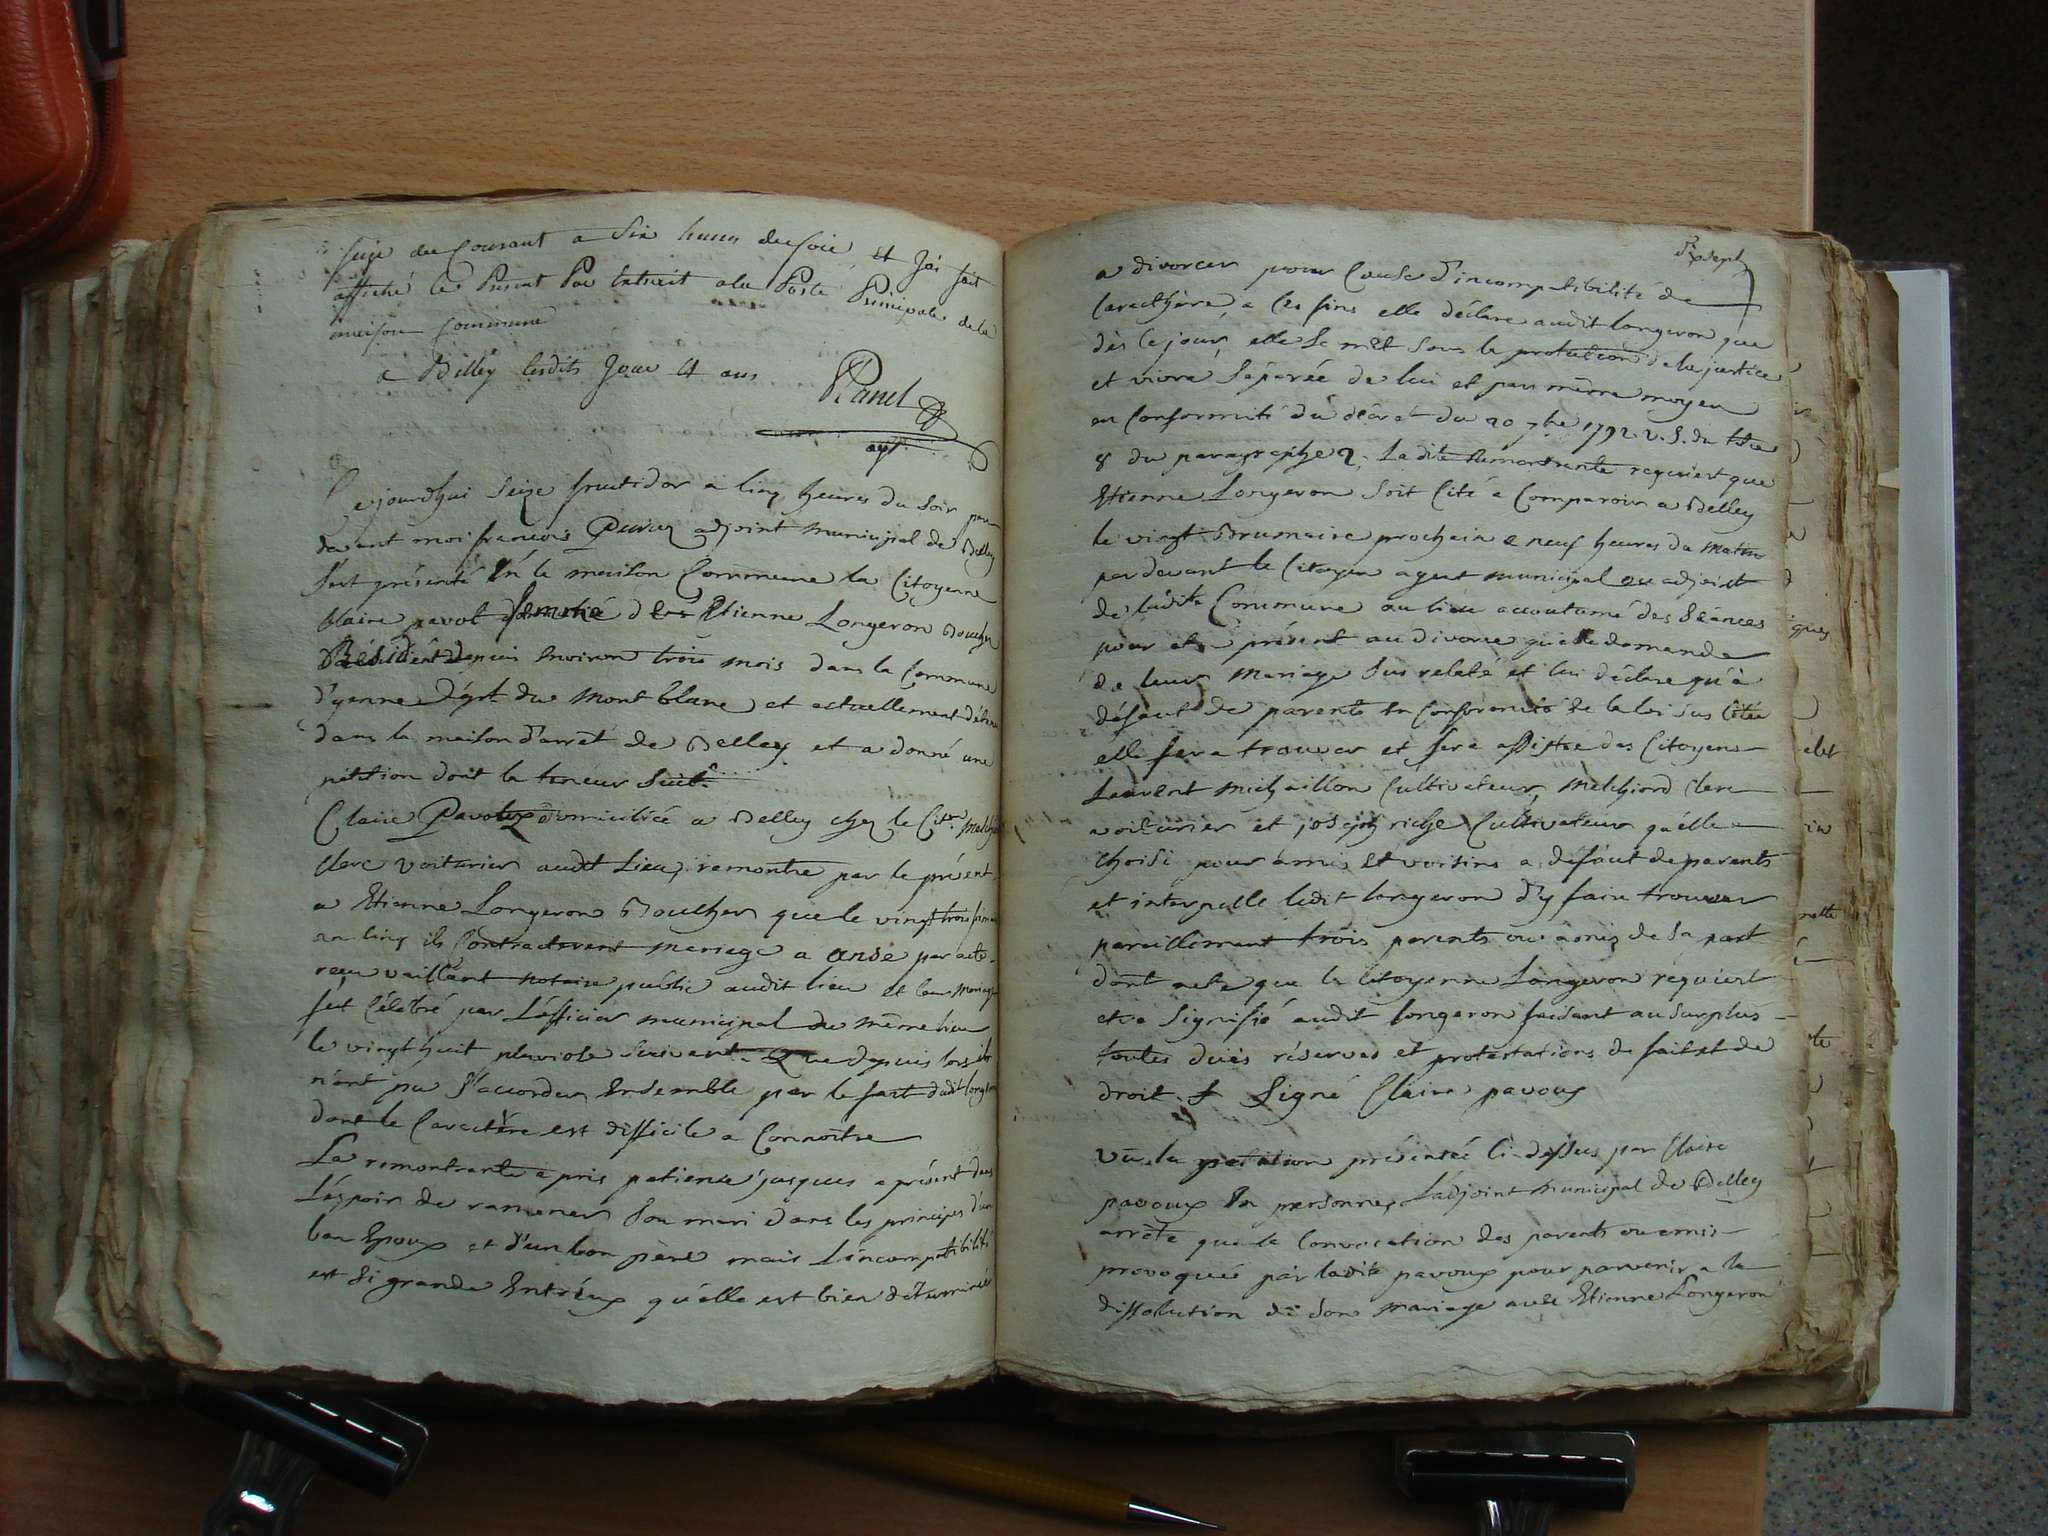 seize du Courant a Six heures du soir, et J'ai fait
affiché le Present Par Extrait a la Porte Principale de la
maison Commune
a Belley lesdits Jour & ans
agt.
Cejourdhui Seize fructidor a Cinq heures du Soir par
devant moi francois adjoint municipal de Belley
s'est présenté En la maison Commune la Citoyenne
Claire pavol femme d Etienne Longeron Boucher
Résident depuis environ trois mois dans la Commune
d'yenne dépt. du Mont blanc et actuellement détenu
dans la maison d'arrêt de Belley et a donné une
pétition dont la teneur Suit.
Claire Pavoux domiciliée a Belley chez le Cit. Melchior
Clerc voiturier audit Lieu, remontre par le présent
a Etienne Longeron Boucher que le vingt trois frimaire
an Cinq ils Contracterent mariage a anse par acte
reçu vaillant notaire public audit lieu et leur mariage
fut Célébré par L'officier municipal du même lieu
le vingt huit pluviose Suivant. Que depuis lors ils
n'ont pu S'accorder Ensemble par le fait dudit longeron
dont le Caractère est difficile a Connoitre
La remontrante a pris patience jusques a présent dans
L'éspoir de ramener Son mari dans les principes d'un
bon Epoux et d'un bon père mais L'incompatibilité
est Si grande Entréux qu'élle est bien déterminée
a divorcer pour Cause d'incompatibilité de
Caracthère, a Ces fins elle déclare audit longeron que
dès Ce jour, elle Se mêt Sous la protection de la justice
et vivra Séparée de lui et par même moyen
en Conformité du décret du 20 7bre 1792. v. S. du titre
8 du paragraphe 2. Ladite Remontrante requiert que
Etienne Longeron Soit Cité a Comparoir a Belley
le vingt Brumaire prochain a neuf heures du Matin
pardevant le Citoyen agent municipal ou adjoint
de ladite Commune au lieu accoutumé des Séances
pour etre présent au divorce qu'elle demande
de leur Mariage Sus relaté et lui déclare qu'à
défaut de parents En Conformité de la loi Sus Citée
elle fera trouver et Sera assistée des Citoyens
Laurent michaillon Cultivateur, Melchiord Clerc
voiturier et joseph riche Cultivateur qu'élle a
Choisi pour amis et voisins a défaut de parents
et intérpelle ledit longeron d'y faire trouver
pareillement trois parents ou amis de Sa part
dont acte que la Citoyenne Longeron réquiert
etre Signifié audit longeron faisant au Surplus
toutes dues réserves et protestations de fait et de
droit. Signé Claire pavoux
vu la pétition présentée Ci-dessus par Claire
pavoux En personne, L'adjoint municipal de Belley
arrête que la Convocation des parents ou amis
provoquée par ladite pavoux pour parvenir a la
dissolution de Son Mariage avec Etienne Longeron